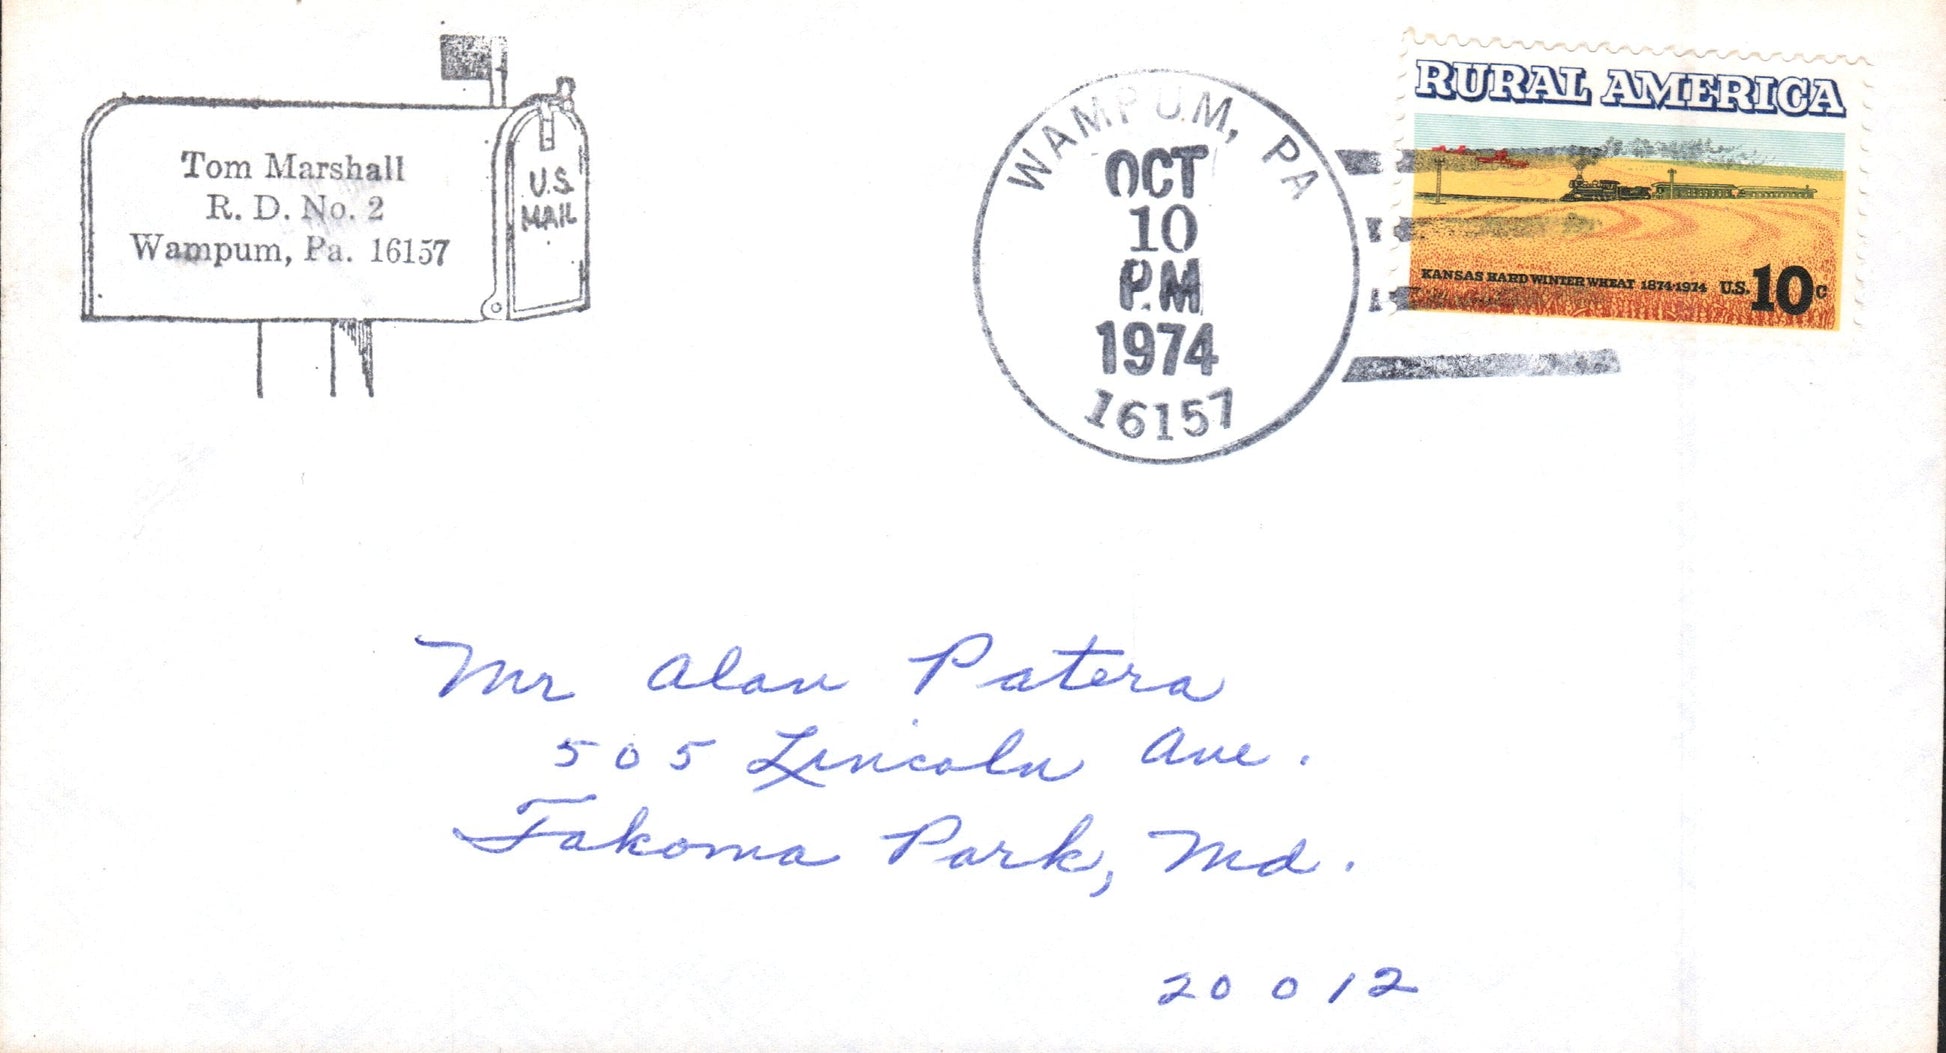 Tom Marshall
R. D. No. 2
Wampum, Pa. 16157
U.S.
MAIL
WAMPUM, PA
OCT
10
PM
1974
16157
RURAL AMERICA
KANSAS HARD WINTER WHEAT 1874-1974 U.S. 10c
Mr Alan Patera
505 Lincoln Ave.
Takoma Park, Md.
20012